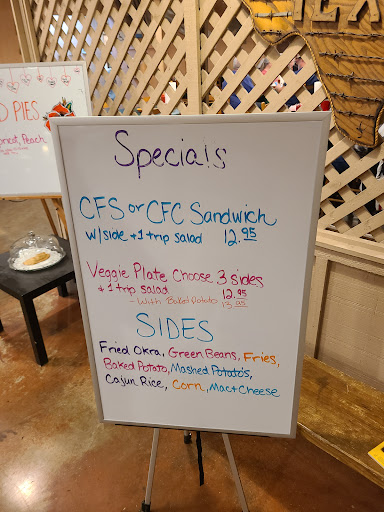 D PIES
Apricot, Peach
Specials
CFS or CFC Sandwich
w/side + 1 trip salad 12.95
Veggie Plate Choose 3 sides
+ 1 trip salad 12.95
- With Baked Potato 13.95
SIDES
Fried Okra, Green Beans, Fries,
Baked Potato, Mashed Potato's,
Cajun Rice, Corn, Mac + Cheese